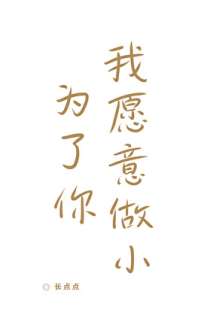 我愿意做小
为了你
◎ 长点点